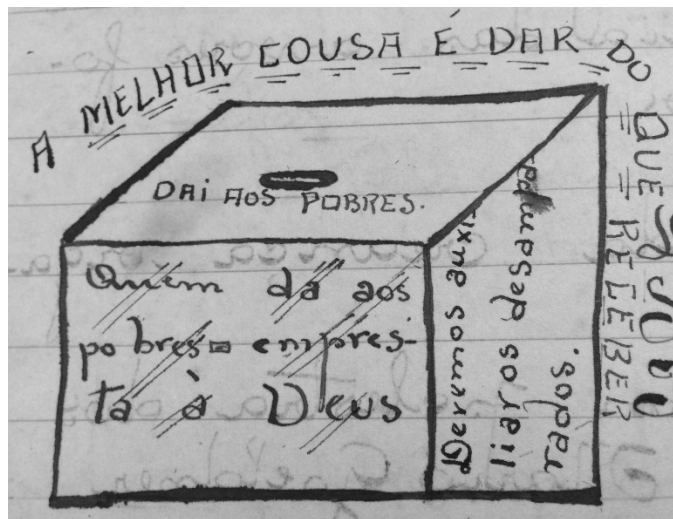 A MELHOR COUSA É DAR DO QUE RECEBER
DAI AOS POBRES.
Quem da aos
pobres = empres-
ta à Deus
Devemos auxi-
liaros desampa-
rados.